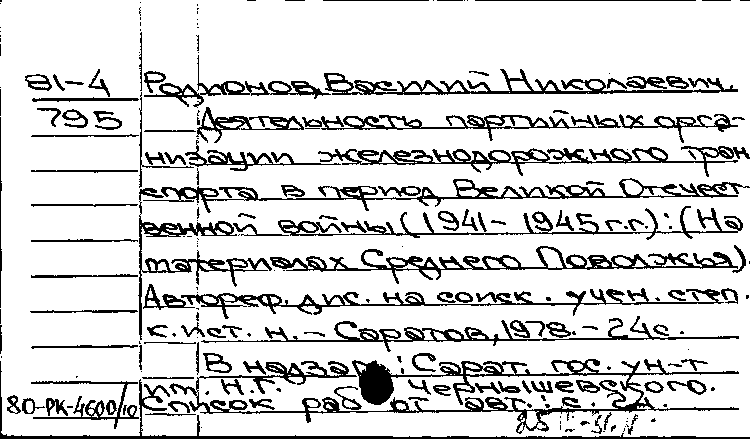 81-4 Родионов, Василий Николаевич.
795 Деятельность партийных орга-
низации железнодорожного тран
спорта в период Великой Отечест-
венной войны (1941-1945 г.г.): (На
материалах Среднего Поволжья).
Автореф. дис. на соиск. учен. степ.
к. ист. н. - Саратов, 1978. - 24с.
В надзаг.: Сарат. гос. ун-т
им. Н.Г. Чернышевского.
80-РК-4600/10 Список работ авт.: с. 24.